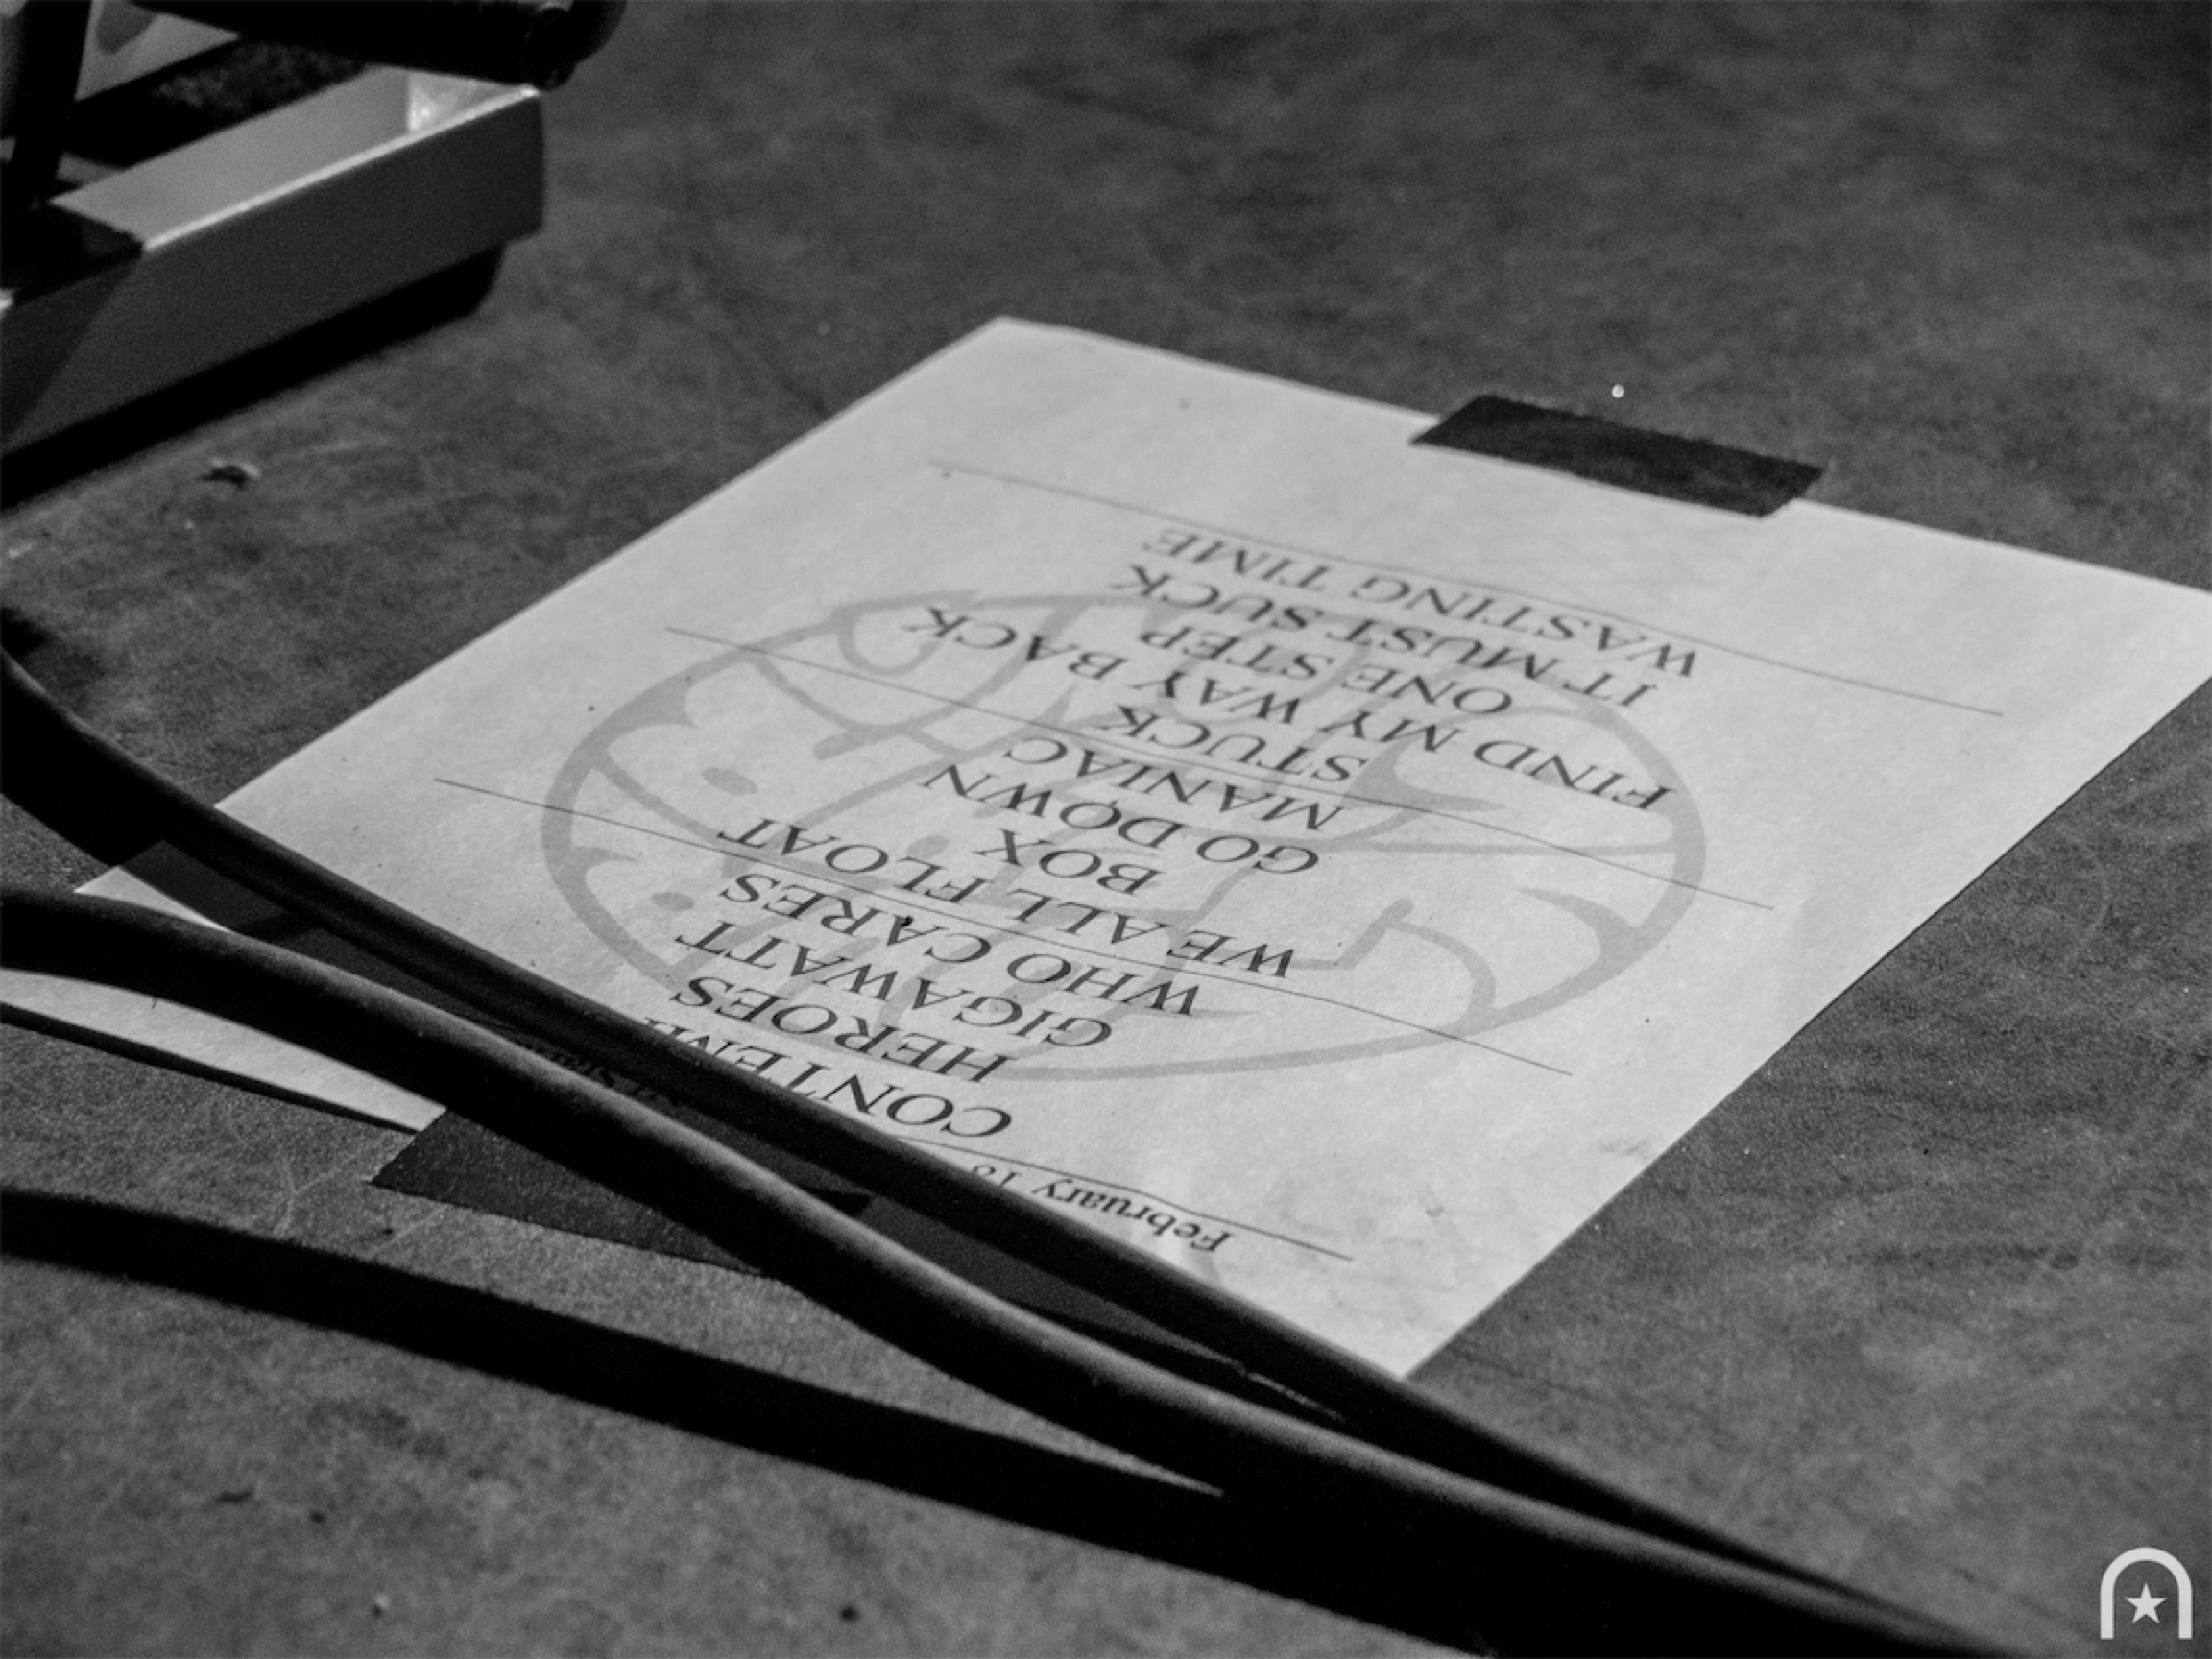 February 18
CONTEM
HEROES
GIGAWATT
WHO CARES
WE ALL FLOAT
BOX
GO DOWN
MANIAC
STUCK
FIND MY WAY BACK
ONE STEP
IT MUST SUCK
WASTING TIME